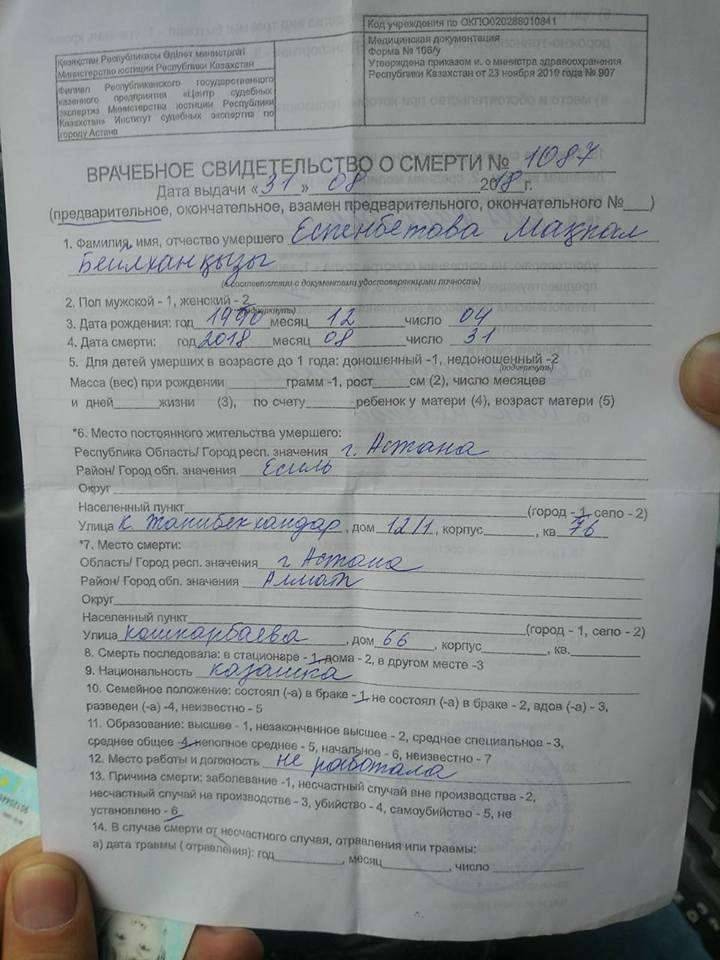 Қазақстан Республикасы Әділет министрлігі
Министерство юстиции Республики Казахстан
Филиал Республиканского государственного
казенного предприятия «Центр судебных
экспертиз Министерства юстиции Республики
Казахстан» Институт судебных экспертиз по
городу Астана
Код учреждения по ОКПО020288010841
Медицинская документация
Форма № 106/у
Утверждена приказом и. о министра здравоохранения
Республики Казахстан от 23 ноября 2010 года № 907
ВРАЧЕБНОЕ СВИДЕТЕЛЬСТВО О СМЕРТИ № 1087
Дата выдачи «31» 08 2018 г.
(предварительное, окончательное, взамен предварительного, окончательного №___)
1. Фамилия, имя, отчество умершего Еспенбетова Мақпал
Бейлханқызы
(в соответствии с документами удостоверяющими личность)
2. Пол мужской - 1, женский - 2
(подчеркнуть)
3. Дата рождения: год 1990 месяц 12 число 04
4. Дата смерти: год 2018 месяц 08 число 31
5. Для детей умерших в возрасте до 1 года: доношенный -1, недоношенный -2
(подчеркнуть)
Масса (вес) при рождении ________грамм -1, рост_____см (2), число месяцев
и дней______жизни (3), по счету______ребенок у матери (4), возраст матери (5)
*6. Место постоянного жительства умершего:
Республика Область/ Город респ. значения г. Астана
Район/ Город обл. значения Есиль
Округ
Населенный пункт (город - 1, село - 2)
Улица К. Жанибек хандар, дом 12/1, корпус_______, кв. 76
*7. Место смерти:
Область/ Город респ. значения г Астана
Район/ Город обл. значения Алмат
Округ
Населенный пункт (город - 1, село - 2)
Улица кошкарбаева, дом 66, корпус_________, кв.
8. Смерть последовала: в стационаре - 1, дома - 2, в другом месте -3
9. Национальность казашка
10. Семейное положение: состоял (-а) в браке - 1, не состоял (-а) в браке - 2, вдов (-а) - 3,
разведен (-а) -4, неизвестно - 5
11. Образование: высшее - 1, незаконченное высшее - 2, среднее специальное - 3,
среднее общее -4, неполное среднее - 5, начальное - 6, неизвестно - 7
12. Место работы и должность не работала
13. Причина смерти: заболевание -1, несчастный случай вне производства - 2,
несчастный случай на производстве - 3, убийство - 4, самоубийство - 5, не
установлено - 6
14. В случае смерти от несчастного случая, отравления или травмы:
а) дата травмы ( отравления): год__________, месяц__________, число